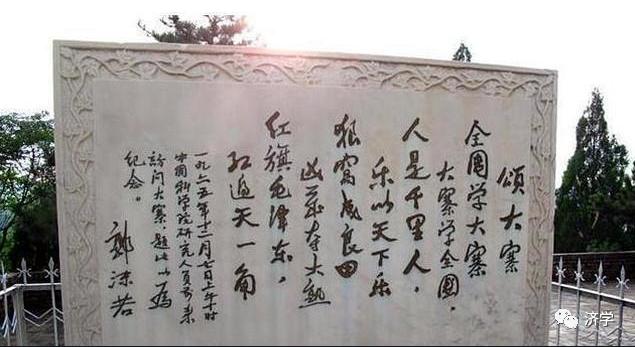 颂大寨
全国学大寨
大寨学全国，
人是千里人，
乐以天下乐
狼窝成良田
凶岁夺大熟
红旗毛泽东，
红过天一角
一九六五年十二月七日上午十时
中国科学院研究人员来
访问大寨，题此以为
纪念。
郭沫若
济学